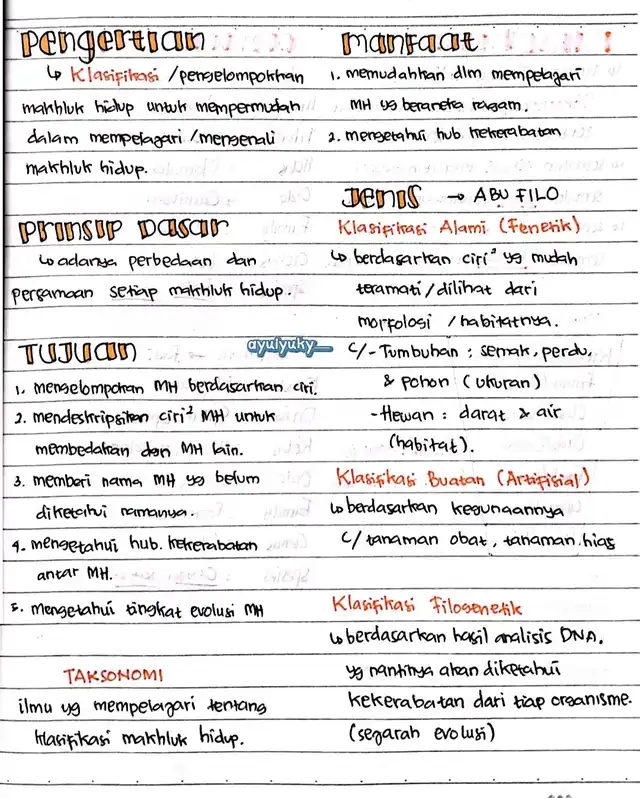 Pengertian
↳ Klasifikasi / pengelompokkan
makhluk hidup untuk mempermudah
dalam mempelajari / mengenali
makhluk hidup.
PRINSIP DASAR
↳ adanya perbedaan dan
persamaan setiap makhluk hidup.
TUJUAN
1. mengelompokan MH berdasarkan ciri.
2. mendeskripsikan ciri² MH untuk
membedakan dgn MH lain.
3. memberi nama MH yg belum
diketahui namanya.
4. mengetahui hub. kekerabatan
antar MH.
5. mengetahui tingkat evolusi MH
TAKSONOMI
ilmu yg mempelajari tentang
klasifikasi makhluk hidup.
manfaat
1. memudahkan dlm mempelajari
MH yg beraneka ragam.
2. mengetahui hub kekerabatan
JENIS → ABU FILO
Klasifikasi Alami (Fenetik)
↳ berdasarkan ciri² yg mudah
teramati / dilihat dari
morfologi / habitatnya.
C/ - Tumbuhan : semak, perdu,
& pohon (ukuran)
- Hewan : darat & air
(habitat).
Klasifikasi Buatan (Artifisial)
↳ berdasarkan kegunaannya
C/ tanaman obat, tanaman hias
Klasifikasi Filogenetik
↳ berdasarkan hasil analisis DNA.
yg nantinya akan diketahui
kekerabatan dari tiap organisme.
(sejarah evolusi)
ayulyuky__